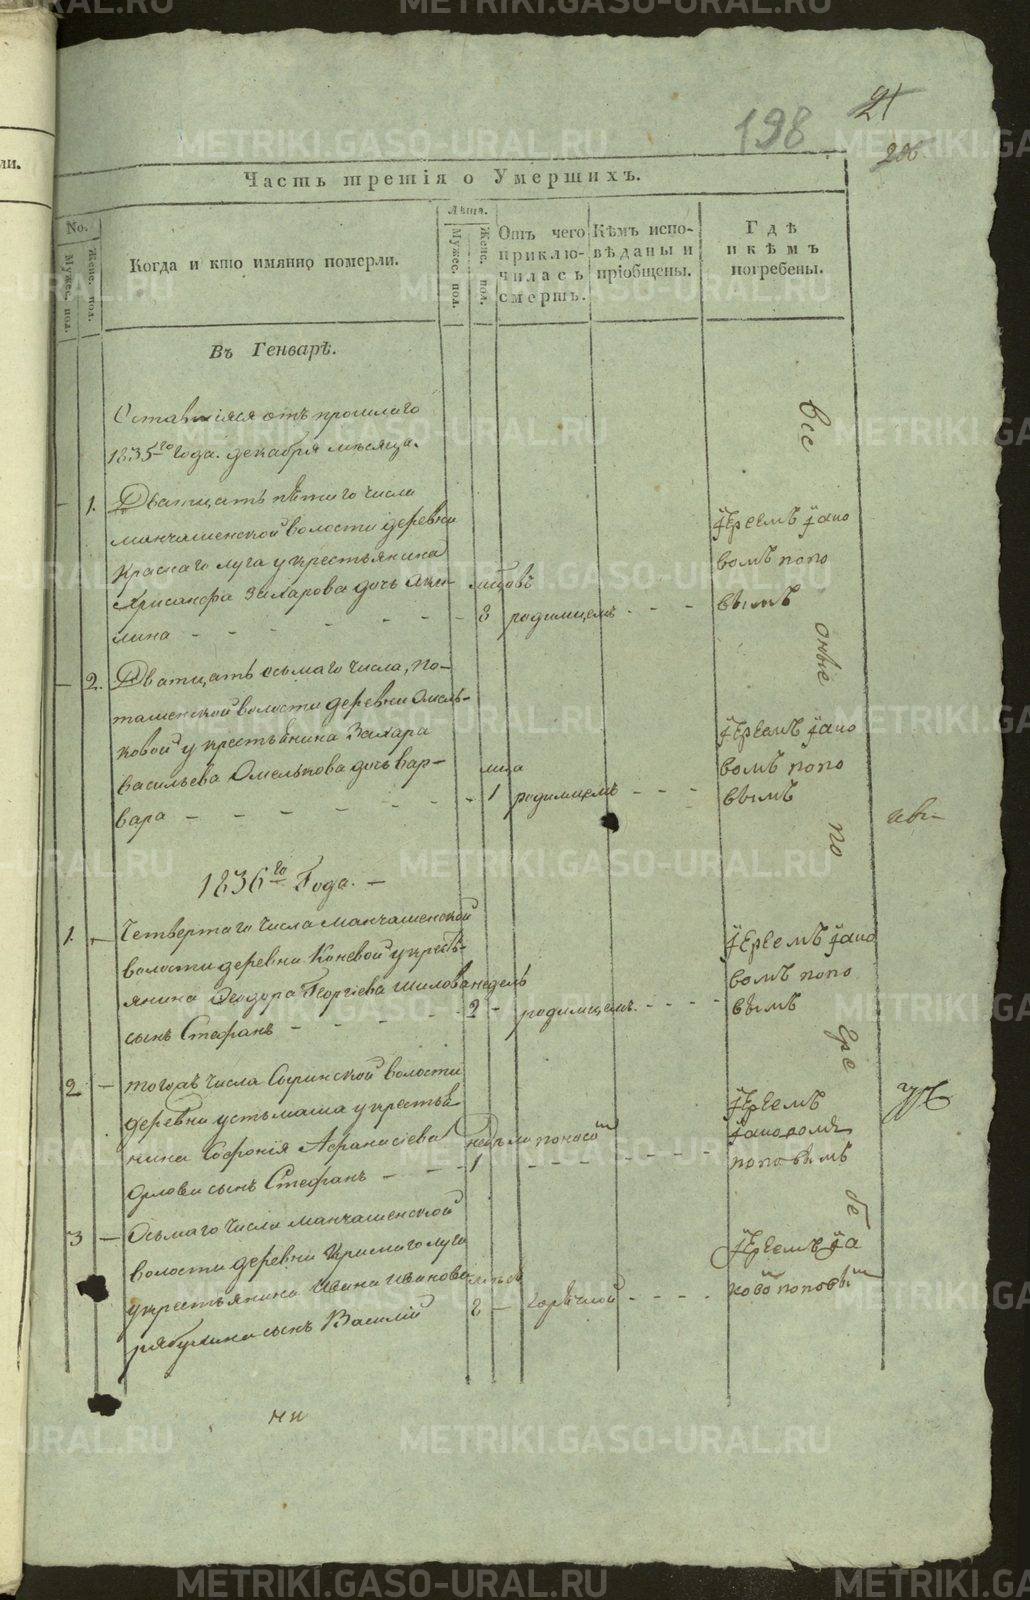 198
21
206
Часть третія о Умершихъ.
No.
Мужес. пол.
Женс. пол.
Когда и кто имянно померли.
Лѣта.
Мужес. пол.
Женс. пол.
Отъ чего
приклю-
чилась
смерть.
Кѣмъ испо-
вѣданы и
пріобщены.
Гдѣ
и кѣмъ
погребены.
Въ Генварѣ.
Оставшіяся отъ прошлаго
1835го года. декабря мѣсяца.
1. Дватцать пятаго числа
манчашенской волости деревни
Краснаго луга у крестьянина
Хрисанфа Захарова дочь Аки-
лина - - - - - -
3 родимцемъ - - -
Іереемъ Іако
вомъ попо
вымъ
2. Дватцать осьмаго числа, по-
ташенской волости деревни Омель-
ковой у крестьянина Захара
васильева Омелькова дочь вар-
вара - - - - - -
1 родимцемъ - - -
Іереемъ Іако
вомъ попо
вымъ
1836го Года. -
1. - Четвертаго числа манчашенской
волости деревни Коневой у кресть-
янина Ѳеодора Георгіева Шилова
сынъ Стефанъ - - - - -
недель
2 - родимцемъ. - - - -
Іереемъ Іако
вомъ попо
вымъ
2 - тогожъ числа Сыринской волости
деревни устьмаша у крестья
нина Софонія Афанасіева
Орлова сынъ Стефанъ - - -
недѣли поносо
1 - - - - - - - -
Іереемъ
Іаковомъ
поповымъ
3 - Осьмаго числа манчашенской
волости деревни Краснаго луга
у крестьянина Ивана Иванова
рябухина сынъ Василій
2 - горячкой - - - -
Іереемъ Іа
ково поповы
все
оные
по
ере
бе
ни
METRIKI.GASO-URAL.RU